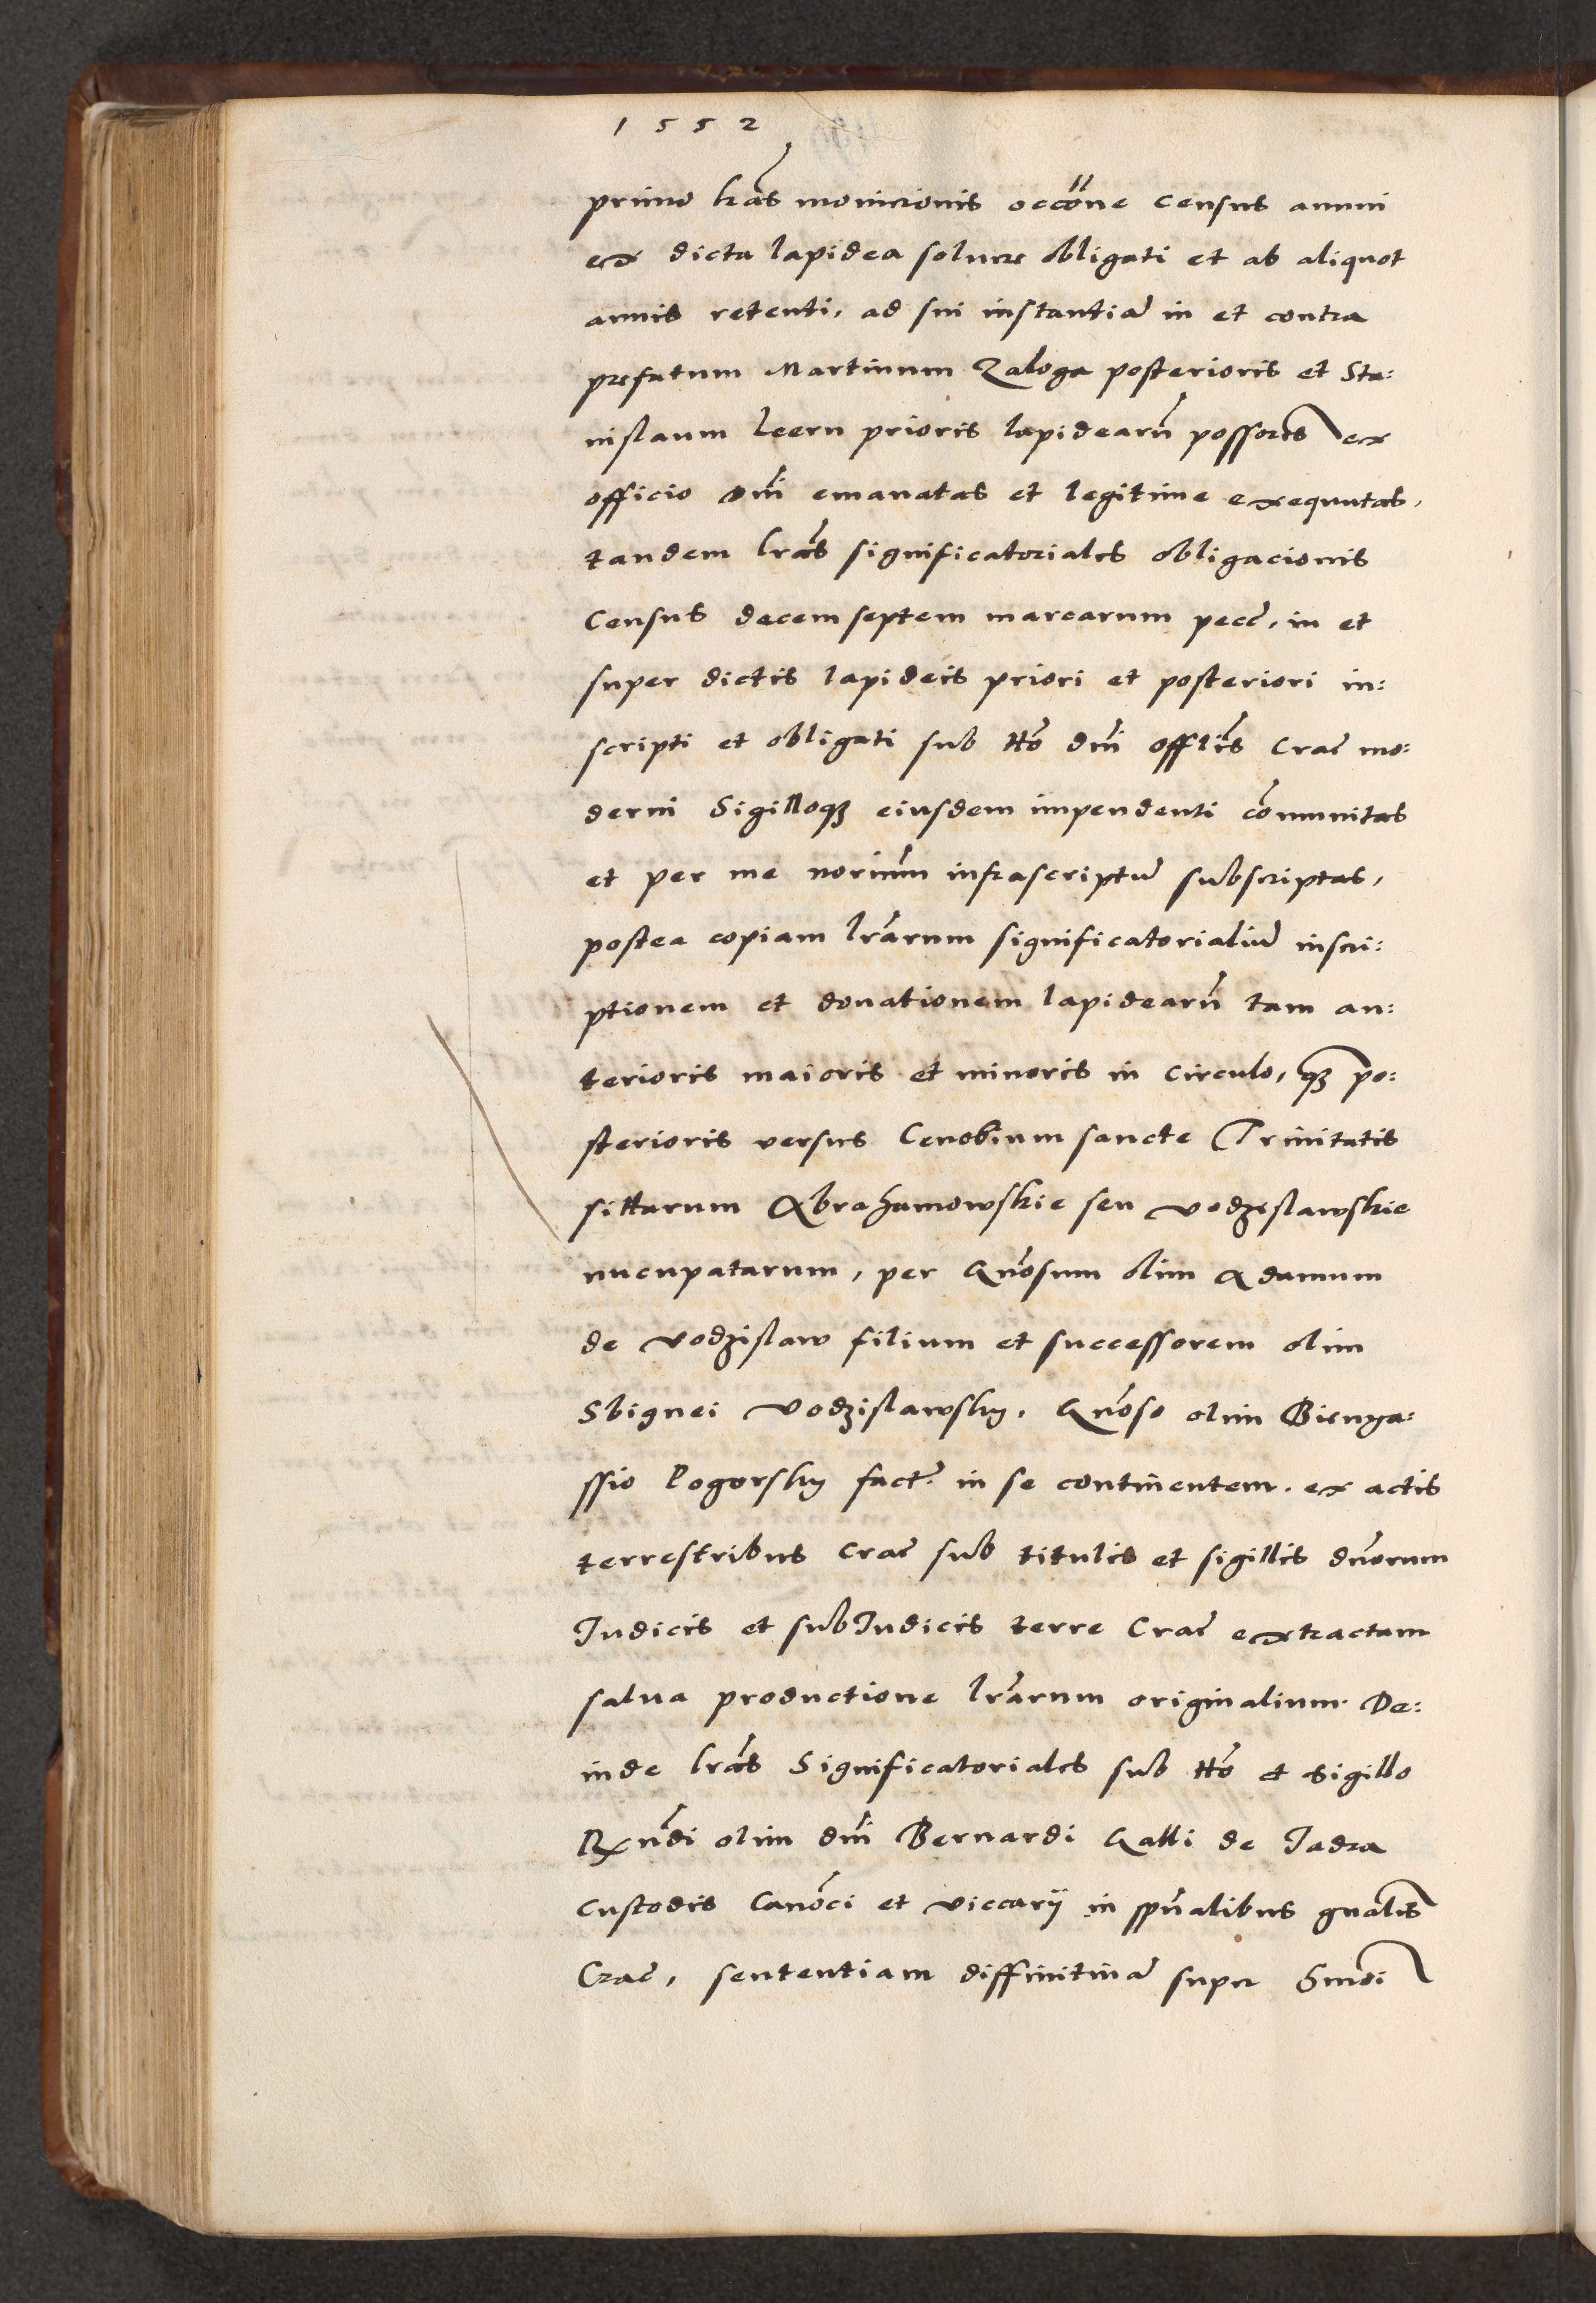 1552
primo lr̃as monicionis occõne census annui
ex dicta lapidea soluere obligati et ab aliquot
annis retenti, ad sui instantiã in et contra
prefatum Martinum Zaloga posterioris et Sta:
nislaum leern prioris lapidearũ possores ex
officio dñi emanatas et legitime exequutas,
tandem lr̃as significatoriales obligacionis
Census decem septem marcarum pecc̃, in et
super dictis lapideis priori et posteriori in:
scripti et obligati sub ttõ dñi offlis̃ Crac̃ mo:
derni Sigilloq3 eiusdem impendenti cõmunitas
et per me noriũm infrascriptũ subscriptas,
postea copiam lr̃arum significatorialiũ inscri:
ptionem et donationem lapidearũ tam an:
terioris maioris et minoris in circulo, q3 po:
sterioris versus Cenobium sancte Trinitatis
sittarum Abrahamowskie seu vodzislawskie
nucupatarum, per Gñosum olim Adamum
de vodzislaw filium et successorem olim
Sbignei vodzislawsky, Gñoso olim Bienya:
ssio Pogorsky fact̃. in se continentem. ex actis
terrestribus Crac̃ sub titulis et sigillis dñorum
Iudicis et subIudicis terre Crac̃ extractam
salua productione lr̃arum originalium. De:
inde lr̃as Significatoriales sub ttõ et sigillo
Rx̃ndi olim dñi Bernardi Galli de Iadra
Custodis Canõci et viccarij in spũalibus gnãlis
Crac̃, sententiam diffinitiuã super